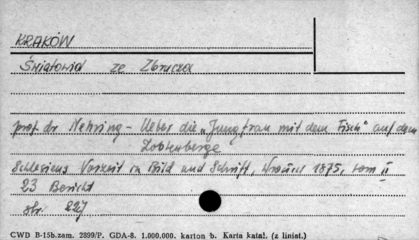 KRAKÓW
Światowid ze Zbrucza
prof. dr Nehring - Ueber die „Jungfrau mit dem Fisch" auf dem
Zobtenberge
Schlesiens Vorzeit in Bild und Schrift, 1875, tom II
23 Bericht
str. 227
CWD B-15b.zam. 2899/P. GDA-8. 1.000.000. karton b. Karta katal. (z liniat.)